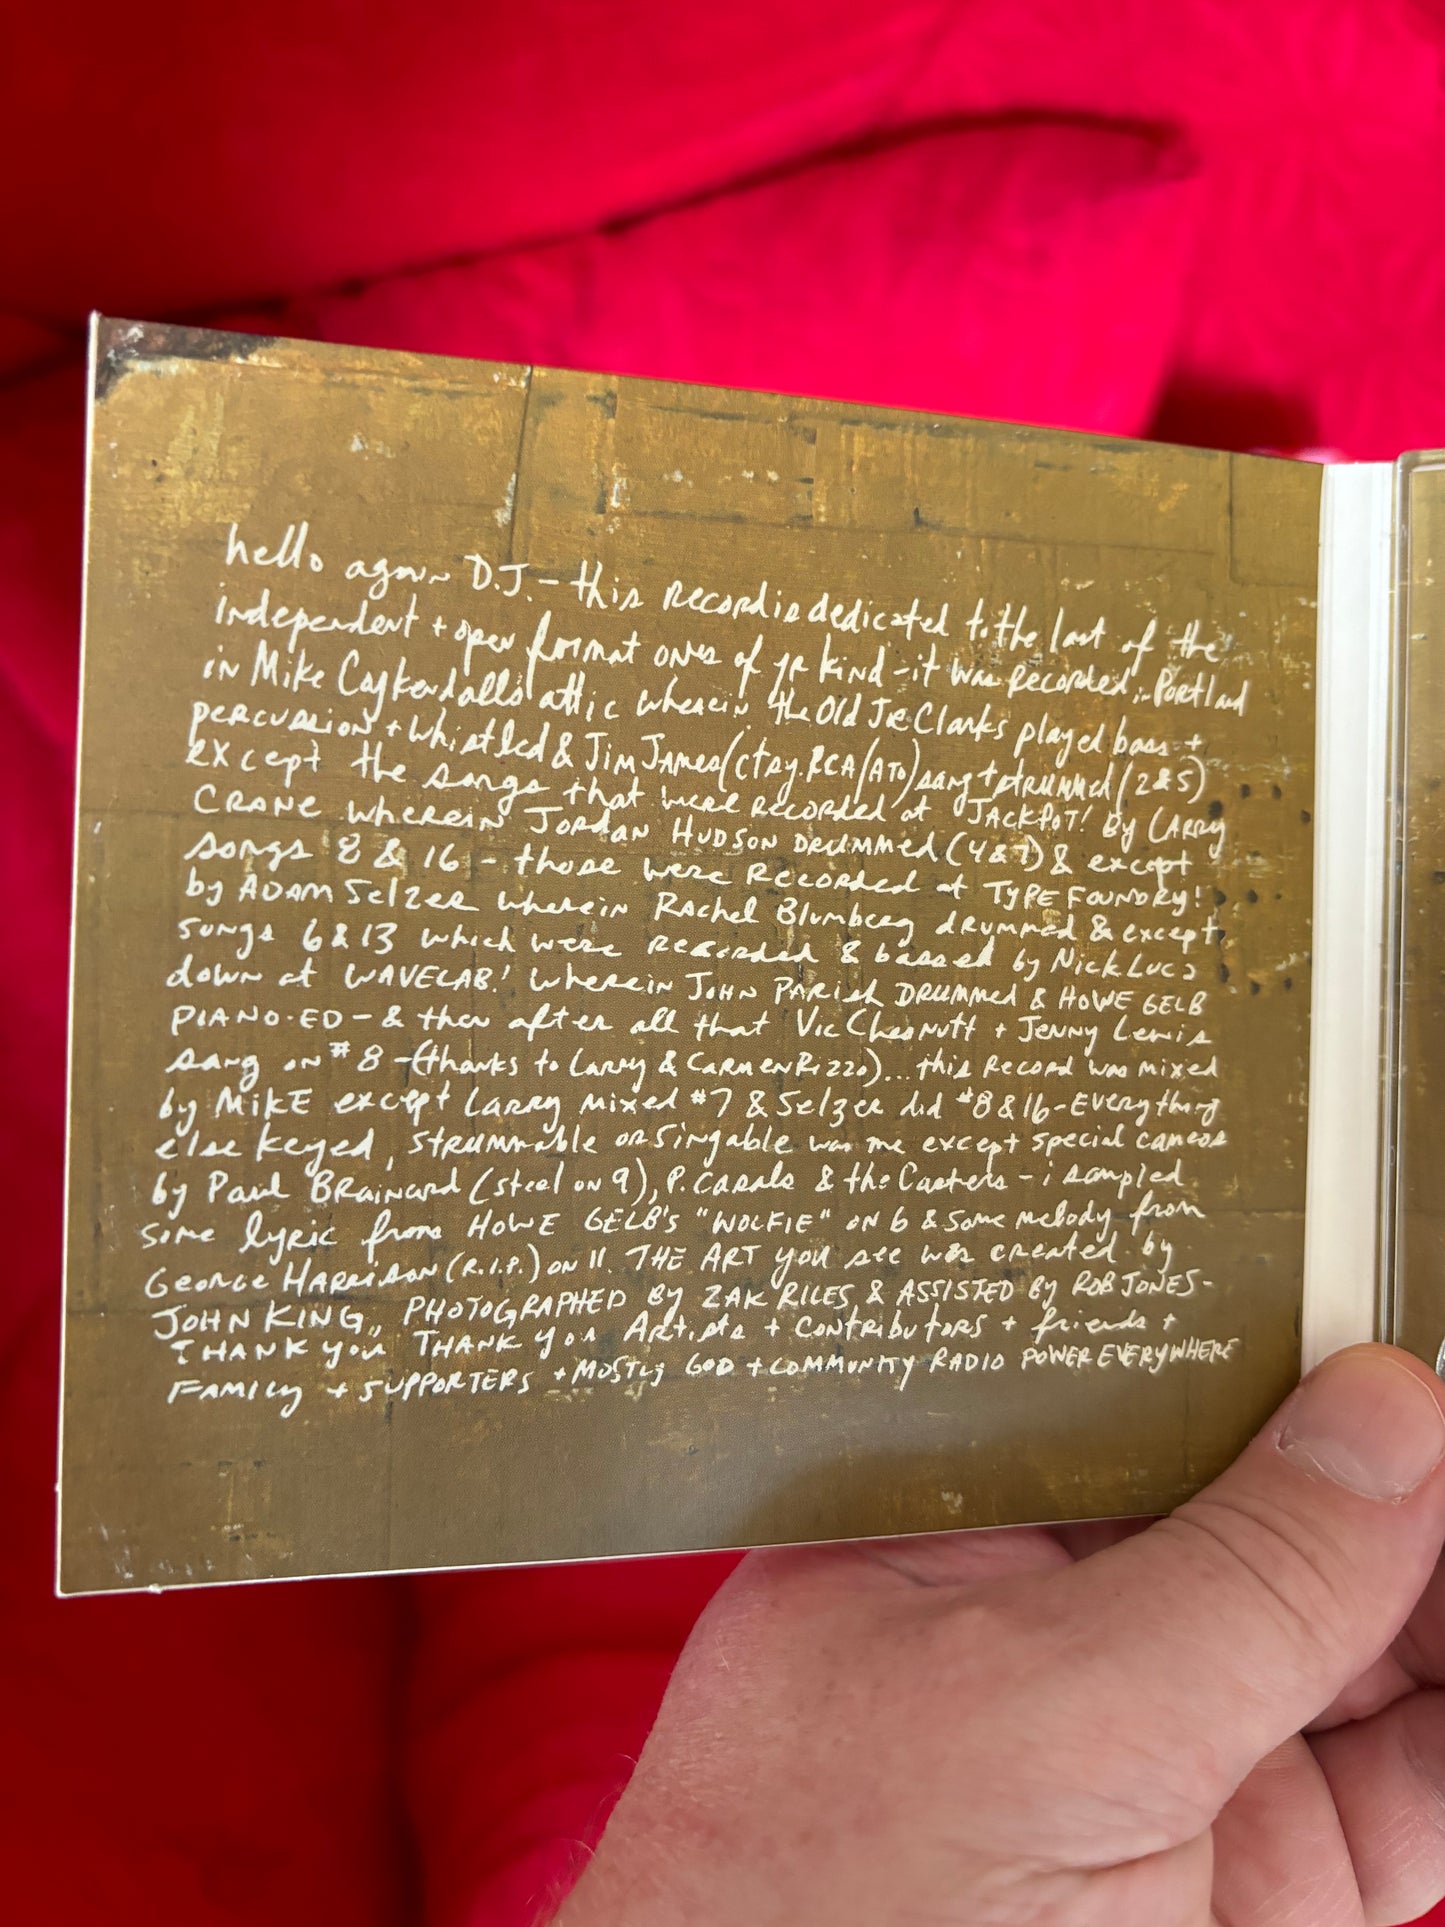 hello again D.J. - this record is dedicated to the last of the
independent + open format ones of yr kind - it was recorded in Portland
in Mike Coykendall's attic wherein the Old Joe Clarks played bass +
percussion + whistled & Jim James (ctsy. RCA/ATO) sang + strummed (2 & 5)
except the songs that were recorded at JACKPOT! By LARRY
CRANE wherein JORDAN HUDSON DRUMMED (4 & 7) & except
songs 8 & 16 - those were RECORDED at TYPE FOUNDRY!
by ADAM Selzer wherein Rachel Blumberg drummed & except
songs 6 & 13 which were recorded & bassed by Nick Luca
down at WAVELAB! wherein JOHN PARISH DRUMMED & HOWE GELB
PIANO-ED - & then after all that Vic Chesnutt + Jenny Lewis
sang on #8 - (thanks to Larry & CARMEN RIZZO)... this record was mixed
by MIKE except Larry mixed #7 & Selzer did #8 & 16 - Everything
else keyed, strummable or singable was me except special cameos
by Paul BRAINARD (steel on 9), P. CASALS & the Casters - i sampled
some lyric from HOWE GELB'S "WOLFIE" on 6 & some melody from
GEORGE HARRISON (R.I.P.) ON 11. THE ART you see was created by
JOHN KING, PHOTOGRAPHED BY ZAK RILES & ASSISTED BY ROB JONES -
THANK you THANK you Artists + contributors + friends +
FAMILY + SUPPORTERS + MOSTLY GOD + COMMUNITY RADIO POWER EVERYWHERE